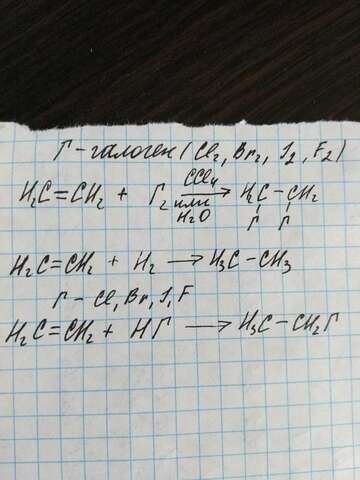 Г-галоген (Cl2, Br2, J2, F2)
H2C=CH2 + Г2 CCl4 или H2O → H2C-CH2
Г Г
H2C=CH2 + H2 → H3C-CH3
Г-Cl, Br, J, F
H2C=CH2 + HГ → H3C-CH2Г